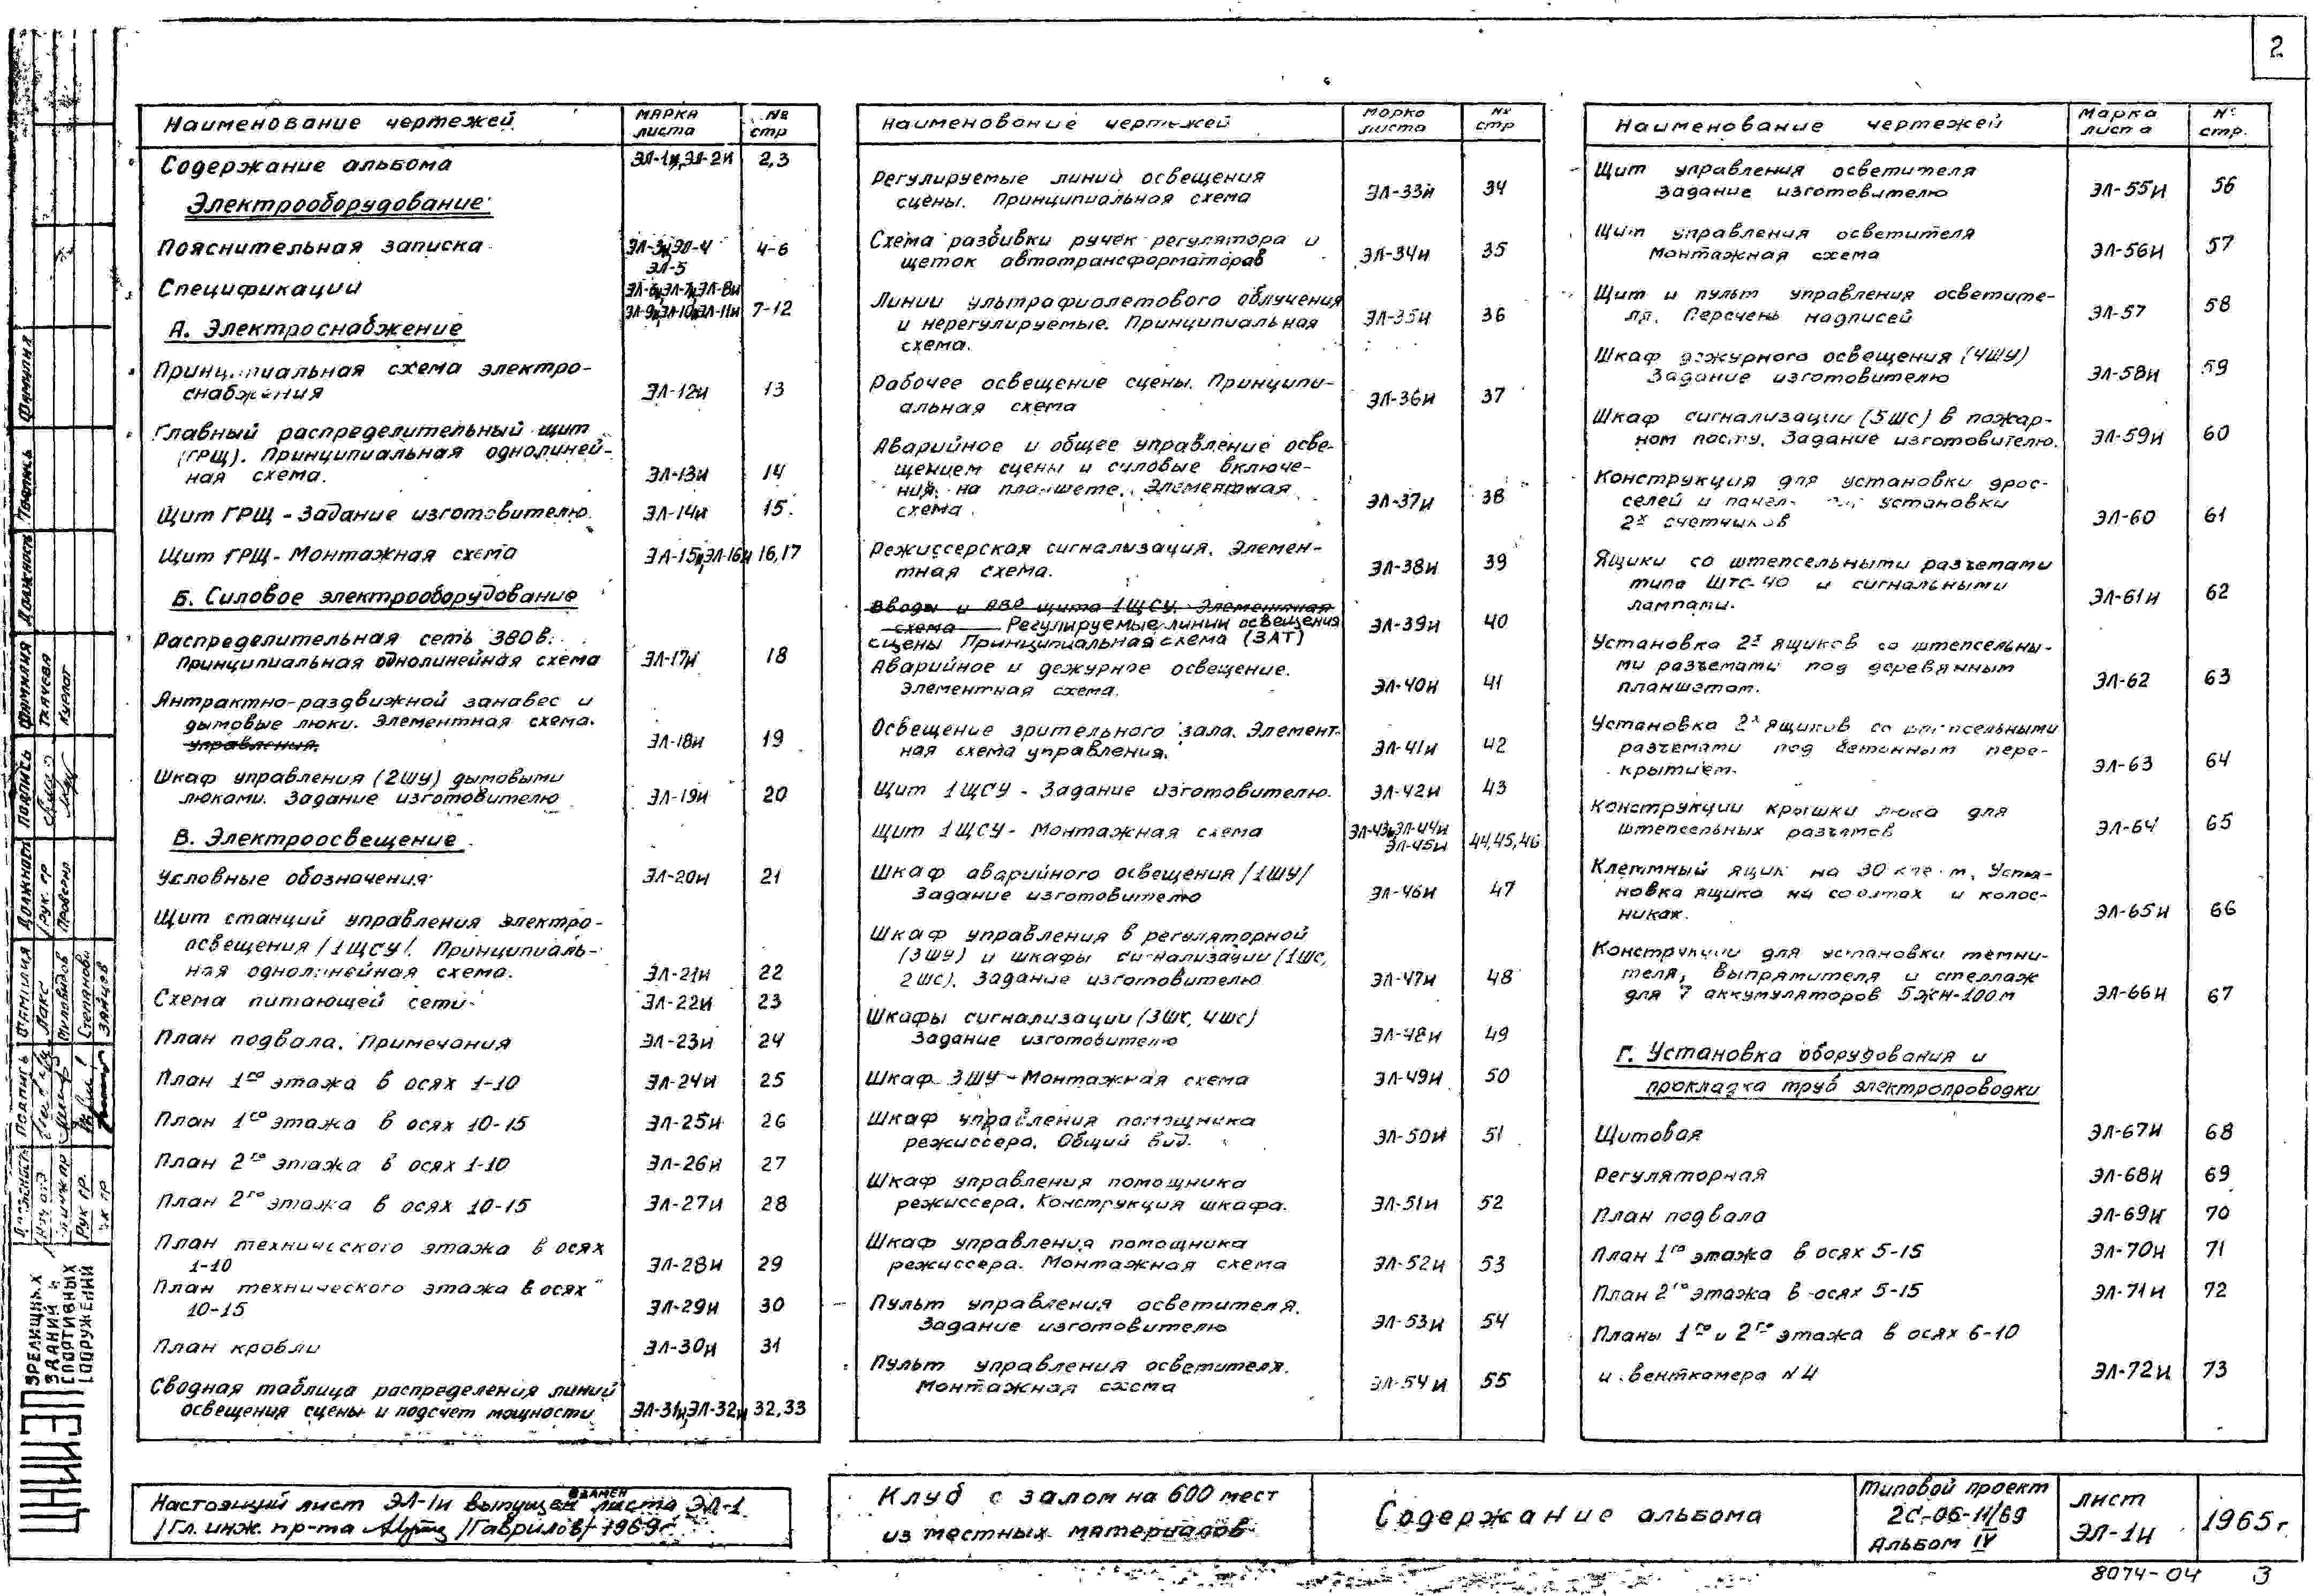 2
Наименование чертежей МАРКА листа № стр
Содержание альбома ЭЛ-1и, ЭЛ-2и 2,3
Электрооборудование
Пояснительная записка ЭЛ-3и, ЭЛ-4 4-6
ЭЛ-5
Спецификации ЭЛ-6и, ЭЛ-7и, ЭЛ-8и
ЭЛ-9и, ЭЛ-10и, ЭЛ-11и 7-12
А. Электроснабжение
Принципиальная схема электро-
снабжения ЭЛ-12и 13
Главный распределительный щит
(ГРЩ). Принципиальная однолиней-
ная схема. ЭЛ-13и 14
Щит ГРЩ - Задание изготовителю. ЭЛ-14и 15.
Щит ГРЩ - Монтажная схема ЭЛ-15и, ЭЛ-16и 16,17
Б. Силовое электрооборудование
Распределительная сеть 380в.
Принципиальная однолинейная схема ЭЛ-17и 18
Антрактно-раздвижной занавес и
дымовые люки. Элементная схема.
управления. ЭЛ-18и 19
Шкаф управления (2ШУ) дымовыми
люками. Задание изготовителю ЭЛ-19и 20
В. Электроосвещение
Условные обозначения ЭЛ-20и 21
Щит станций управления электро-
освещения /1ЩСУ/. Принципиаль-
ная однолинейная схема. ЭЛ-21и 22
Схема питающей сети ЭЛ-22и 23
План подвала. Примечания ЭЛ-23и 24
План 1го этажа в осях 1-10 ЭЛ-24и 25
План 1го этажа в осях 10-15 ЭЛ-25и 26
План 2го этажа в осях 1-10 ЭЛ-26и 27
План 2го этажа в осях 10-15 ЭЛ-27и 28
План технического этажа в осях
1-10 ЭЛ-28и 29
План технического этажа в осях
10-15 ЭЛ-29и 30
План кровли ЭЛ-30и 31
Сводная таблица распределения линий
освещения сцены и подсчет мощности ЭЛ-31и, ЭЛ-32и 32,33
Наименование чертежей Марка листа № стр
Регулируемые линий освещения
сцены. Принципиальная схема ЭЛ-33и 34
Схема разбивки ручек регулятора и
щеток автотрансформаторов ЭЛ-34и 35
Линии ультрафиолетового облучения
и нерегулируемые. Принципиальная
схема. ЭЛ-35и 36
Рабочее освещение сцены. Принципи-
альная схема ЭЛ-36и 37
Аварийное и общее управление осве-
щением сцены и силовые включе-
ния на планшете. Элементная
схема. ЭЛ-37и 38
Режиссерская сигнализация. Элемен-
тная схема. ЭЛ-38и 39
Вводы и АВР щита 1ЩСУ. Элементная
схема Регулируемые линии освещения ЭЛ-39и 40
сцены Принципиальная схема (ЗАТ)
Аварийное и дежурное освещение.
Элементная схема. ЭЛ-40и 41
Освещение зрительного зала. Элемент-
ная схема управления. ЭЛ-41и 42
Щит 1ЩСУ - Задание изготовителю. ЭЛ-42и 43
Щит 1ЩСУ - Монтажная схема ЭЛ-43и, ЭЛ-44и
ЭЛ-45и 44,45,46
Шкаф аварийного освещения /1ШУ/
Задание изготовителю ЭЛ-46и 47
Шкаф управления в регуляторной
(3ШУ) и шкафы сигнализации (1ШС,
2ШС). Задание изготовителю ЭЛ-47и 48
Шкафы сигнализации (3ШС, 4ШС)
Задание изготовителю ЭЛ-48и 49
Шкаф 3ШУ - Монтажная схема ЭЛ-49и 50
Шкаф управления помощника
режиссера. Общий вид. ЭЛ-50и 51
Шкаф управления помощника
режиссера. Конструкция шкафа. ЭЛ-51и 52
Шкаф управления помощника
режиссера. Монтажная схема ЭЛ-52и 53
Пульт управления осветителя.
Задание изготовителю ЭЛ-53и 54
Пульт управления осветителя.
Монтажная схема ЭЛ-54и 55
Наименование чертежей Марка листа № стр.
Щит управления осветителя
Задание изготовителю ЭЛ-55и 56
Щит управления осветителя
Монтажная схема ЭЛ-56и 57
Щит и пульт управления осветите-
ля. Перечень надписей ЭЛ-57 58
Шкаф дежурного освещения (4ШУ)
Задание изготовителю ЭЛ-58и 59
Шкаф сигнализации (5ШС) в пожар-
ном посту. Задание изготовителю. ЭЛ-59и 60
Конструкция для установки дрос-
селей и установки
2х счетчиков ЭЛ-60 61
Ящики со штепсельными разъемами
типа ШТС-40 и сигнальными
лампами. ЭЛ-61и 62
Установка 2х ящиков со штепсельны-
ми разъемами под деревянным
планшетом. ЭЛ-62 63
Установка 2х ящиков со штепсельными
разъемами под бетонным пере-
крытием. ЭЛ-63 64
Конструкции крышки люка для
штепсельных разъемов ЭЛ-64 65
Клеммный ящик на 30 клемм. Уста-
новка ящика на софитах и колос-
никах. ЭЛ-65и 66
Конструкции для установки темни-
теля, выпрямителя и стеллаж
для 7 аккумуляторов 5ЖН-100м ЭЛ-66и 67
Г. Установка оборудования и
прокладка труб электропроводки
Щитовая ЭЛ-67и 68
Регуляторная ЭЛ-68и 69
План подвала ЭЛ-69и 70
План 1го этажа в осях 5-15 ЭЛ-70и 71
План 2го этажа в осях 5-15 ЭЛ-71и 72
Планы 1го и 2го этажа в осях 6-10
и венткамера N4 ЭЛ-72и 73
Настоящий лист ЭЛ-1и выпущен взамен листа ЭЛ-1
/Гл. инж. пр-та /Гаврилов/ 1969г.
Клуб с залом на 600 мест
из местных материалов
Содержание альбома
Типовой проект
2С-06-11/69
Альбом IV
лист
ЭЛ-1и
1965г.
8074-04 3
ЦНИИЭП
ЗРЕЛИЩНЫХ
ЗДАНИЙ и
СПОРТИВНЫХ
СООРУЖЕНИЙ
Должность Подпись Фамилия
Лакс
Миловидов
Рук. гр. Степанова
Зайцев
Должность Подпись Фамилия
рук. гр Ткачева
Проверил Курлат
Должность Подпись Фамилия